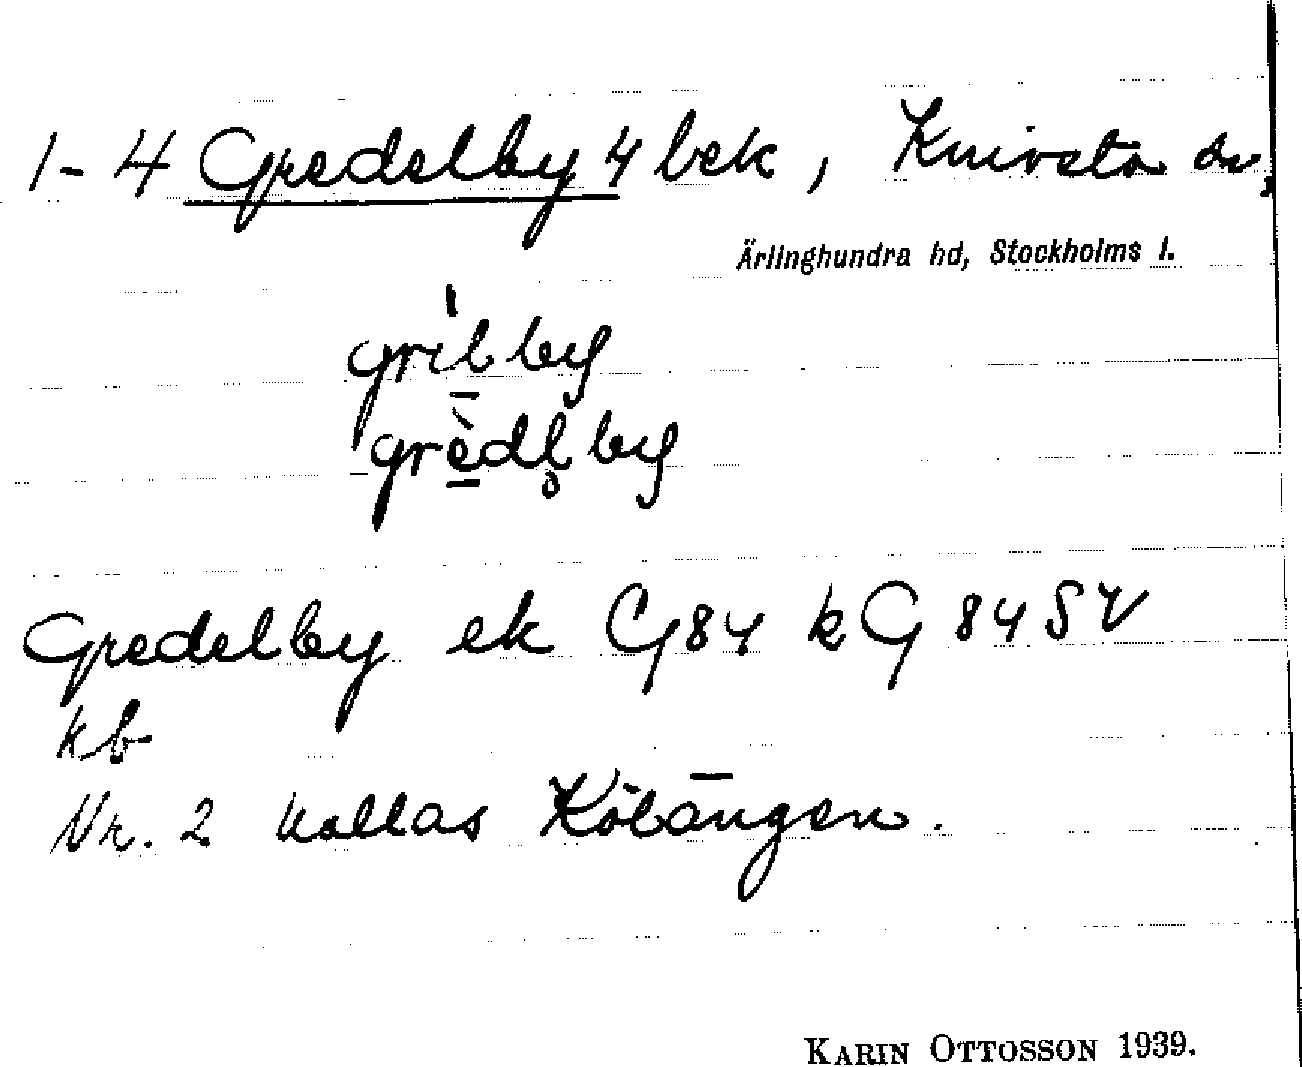 1-4 Gredelby 4 bek, Knivsta sn,
Ärlinghundra hd, Stockholms l.
gril by
grèdl̥ by
Gredelby ek G84 k G 84 SV
kb
Nr. 2 kallas Kölängen.
KARIN OTTOSSON 1939.